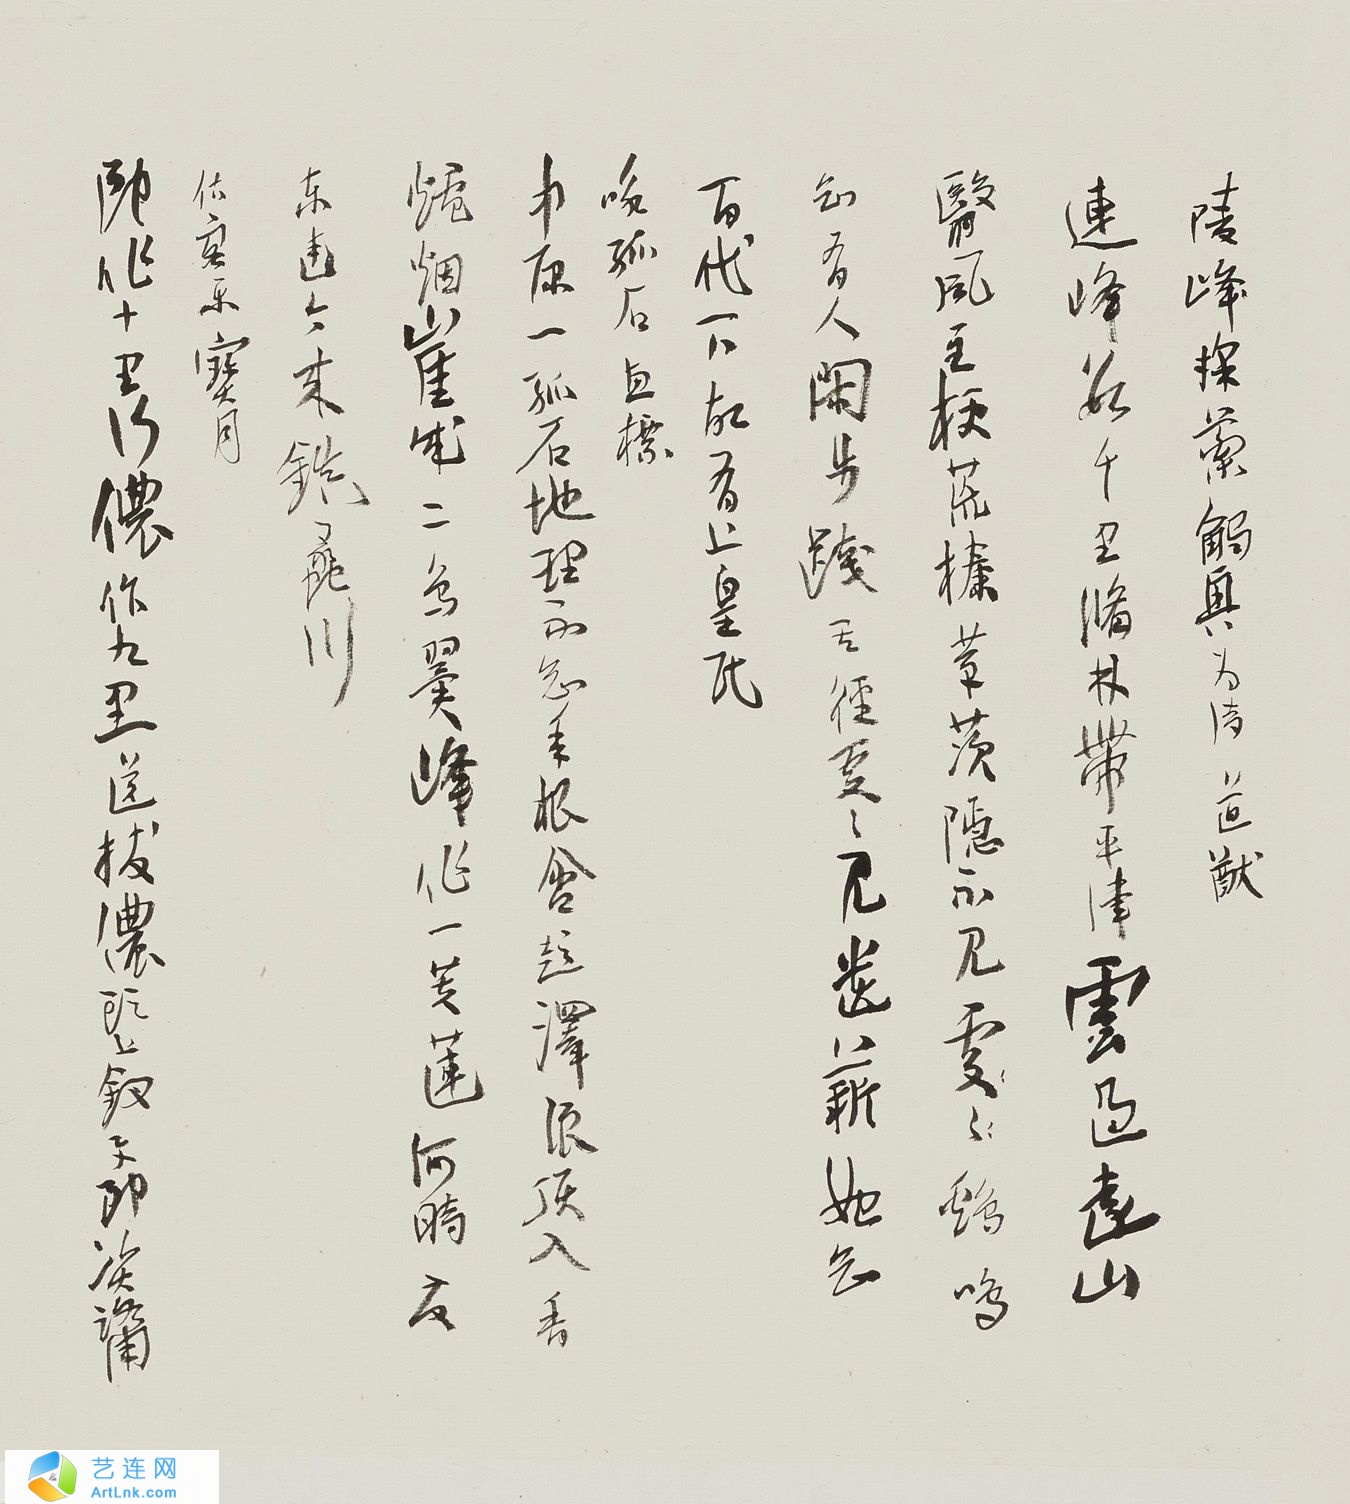 陵峰採藥觸興為詩 道猷
連峰數千里脩林帶平津雲過遠山
翳風至梗荒榛茅茨隱不見處〻雞鳴
知有人閑步踐其徑處〻見遺薪始知
百代下故有上皇民
詠孤石 惠標
中原一孤石地理不知年根含彭澤浪頂入香
爐烟崖成二鳥翼峰作一芙蓮何時發
東造今來鎮蠡川
估客樂 寶月
郎作十里行儂作九里送拔儂頭上釵與郎資路用
艺连网
ArtLnk.com